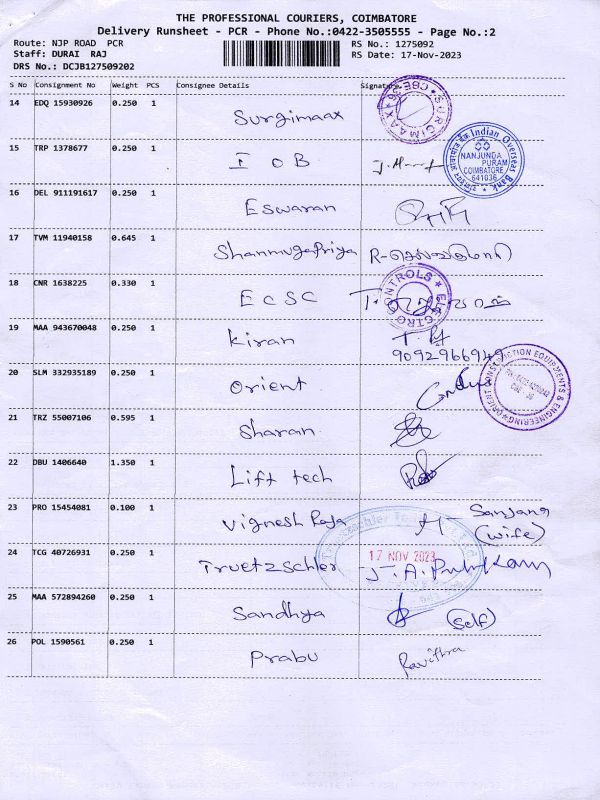 THE PROFESSIONAL COURIERS, COIMBATORE
Delivery Runsheet - PCR - Phone No.:0422-3505555 - Page No.:2
Route: NJP ROAD PCR RS No.: 1275092
Staff: DURAI RAJ RS Date: 17-Nov-2023
DRS No.: DCJB127509202
S No Consignment No Weight PCS Consignee Details Signature
14 EDQ 15930926 0.250 1 Surgimaax SURGIMAAX CBE
15 TRP 1378677 0.250 1 I O B Indian Overseas Bank NANJUNDA PURAM COIMBATORE 641036
16 DEL 911191617 0.250 1 Eswaran
17 TVM 11940158 0.645 1 ShanmugaPriya R-
18 CNR 1638225 0.330 1 E C S C ELECTRO CONTROLS
19 MAA 943670048 0.250 1 Kiran
9092966949
20 SLM 332935189 0.250 1 Orient ORIENT CONSTRUCTION EQUIPMENTS & ENGINEERING
21 TRZ 55007106 0.595 1 Sharan
22 DBU 1406640 1.350 1 Lift tech
23 PRO 15454081 0.100 1 Vignesh Raja Sanjana
(wife)
24 TCG 40726931 0.250 1 Truetzschler 17 NOV 2023
25 MAA 572894260 0.250 1 Sandhya (self)
26 POL 1590561 0.250 1 Prabu Pavithra